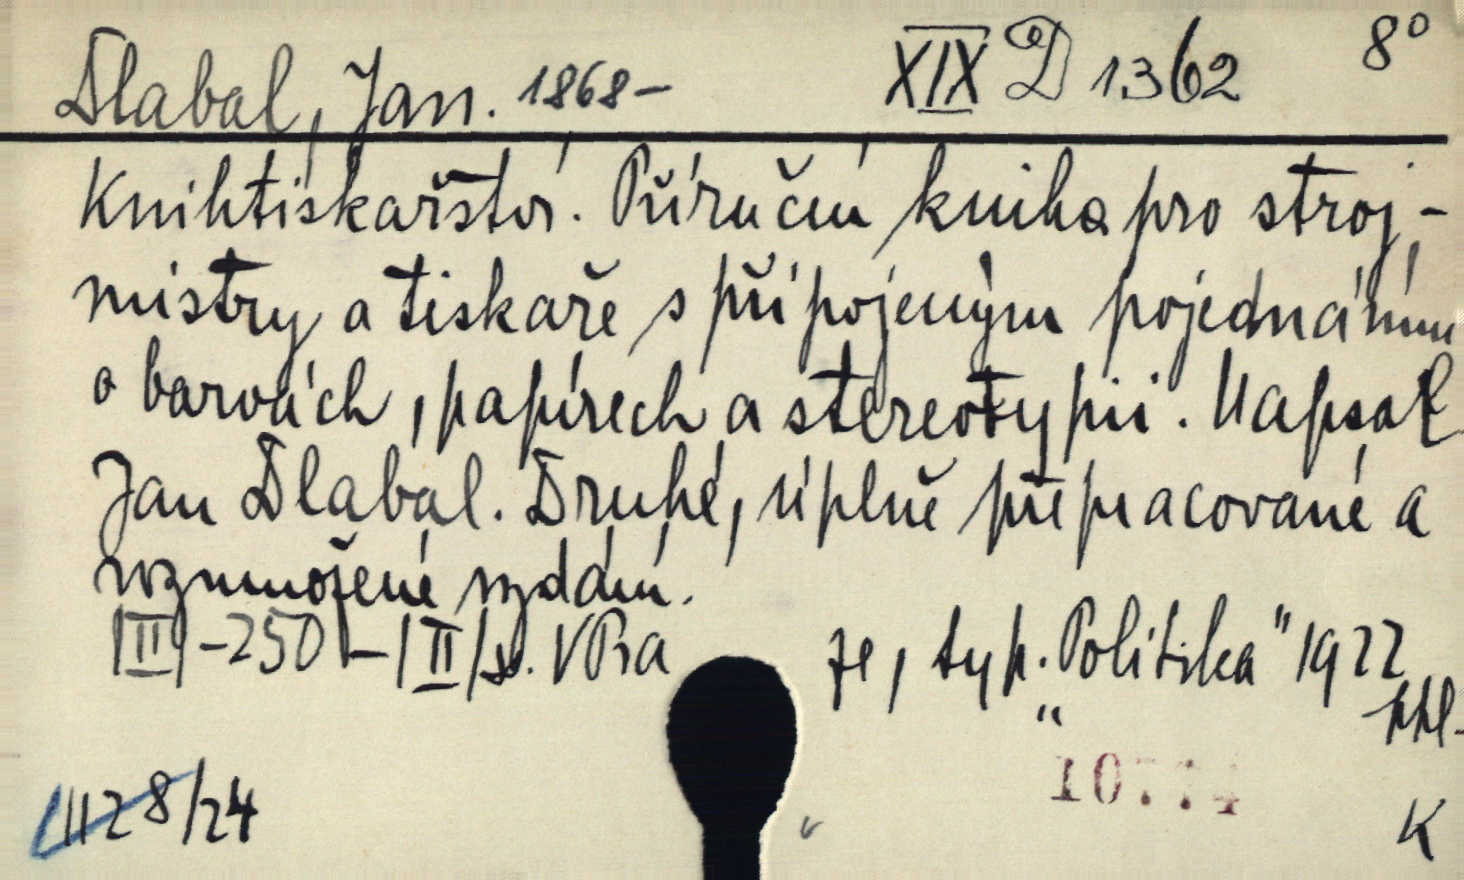 Dlabal, Jan. 1868– XIX D 1362 8°
Knihtiskařství. Příruční kniha pro stroj-
mistry a tiskaře s připojeným pojednáním
o barvách, papírech a stereotypii. Napsal
Jan Dlabal. Druhé, úplně přepracované a
rozmnožené vydání.
|III|-250-|II| s. V Praze, typ. „Politika" 1922
ppl.
10774
1128/24
K